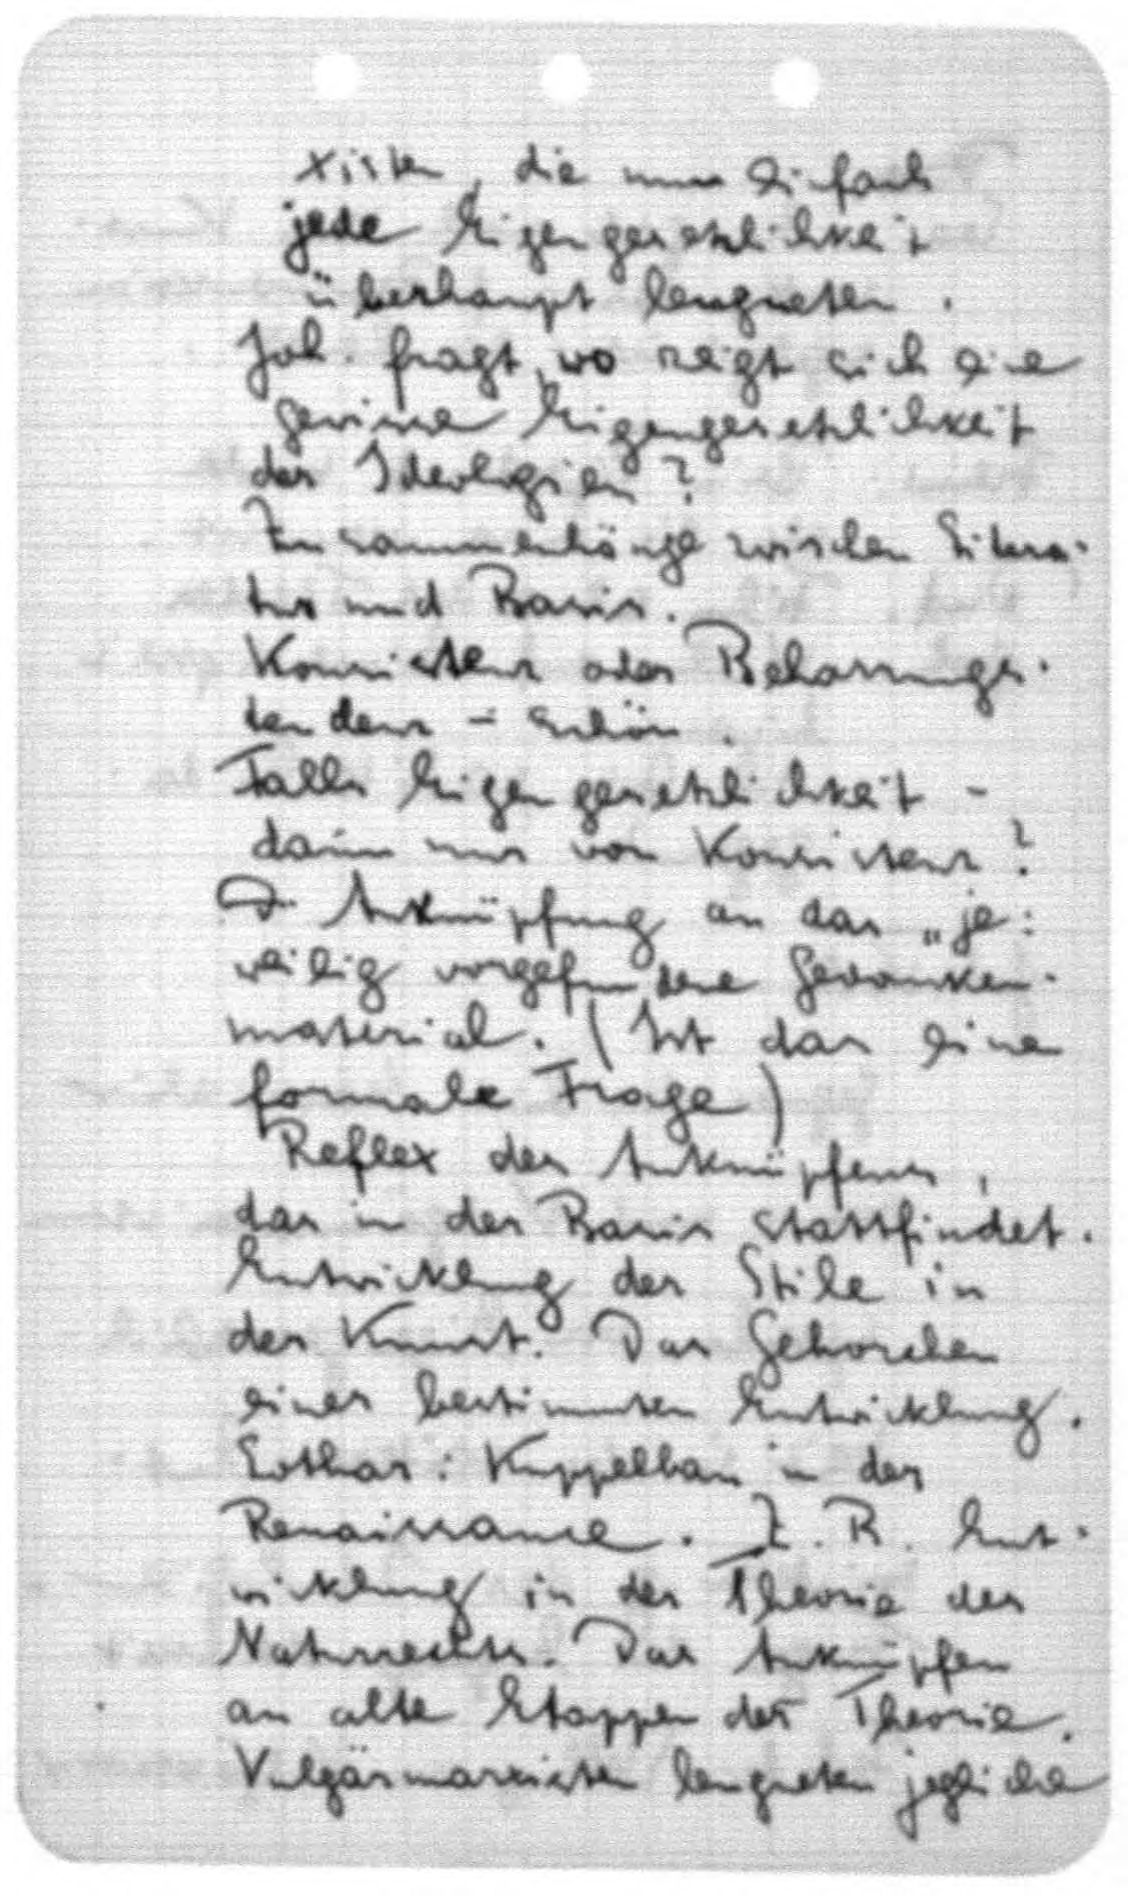 xisten, die nun einfach
jede Eigengesetzlichkeit
überhaupt leugneten.
Joh. fragt, wo zeigt sich eine
gewisse Eigengesetzlichkeit
der Ideologien?
Zusammenhänge zwischen Litera-
tur und Basis.
Konsistenz oder Beharrungs-
tendenz – schön.
Falls Eigengesetzlichkeit –
dann nur von Konsistenz?
D. Anknüpfung an das „je-
weilig vorgefundene Gedanken-
material. (Ist das eine
formale Frage)
Reflex des Anknüpfens,
das in der Basis stattfindet.
Entwicklung der Stile in
der Kunst. Das Gehorchen
einer bestimmten Entwicklung.
Lothar: Kuppelbau in der
Renaissance. Z.B. Ent-
wicklung in der Theorie des
Naturrechts. Das Anknüpfen
an alte Etappen der Theorie.
Vulgärmarxisten leugneten jegliche